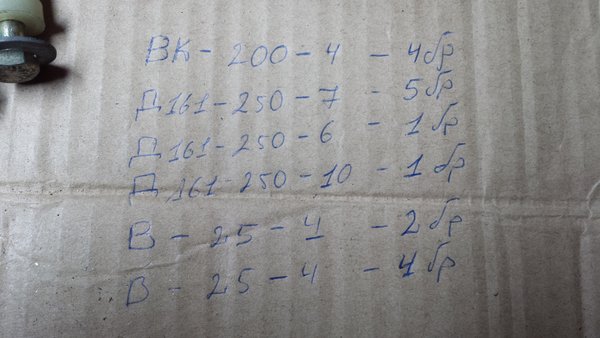 ВК - 200 - 4 - 4бр
Д161 - 250 - 7 - 5бр
Д161 - 250 - 6 - 1бр
Д161 - 250 - 10 - 1бр
В - 25 - 4 - 2бр
В - 25 - 4 - 4бр